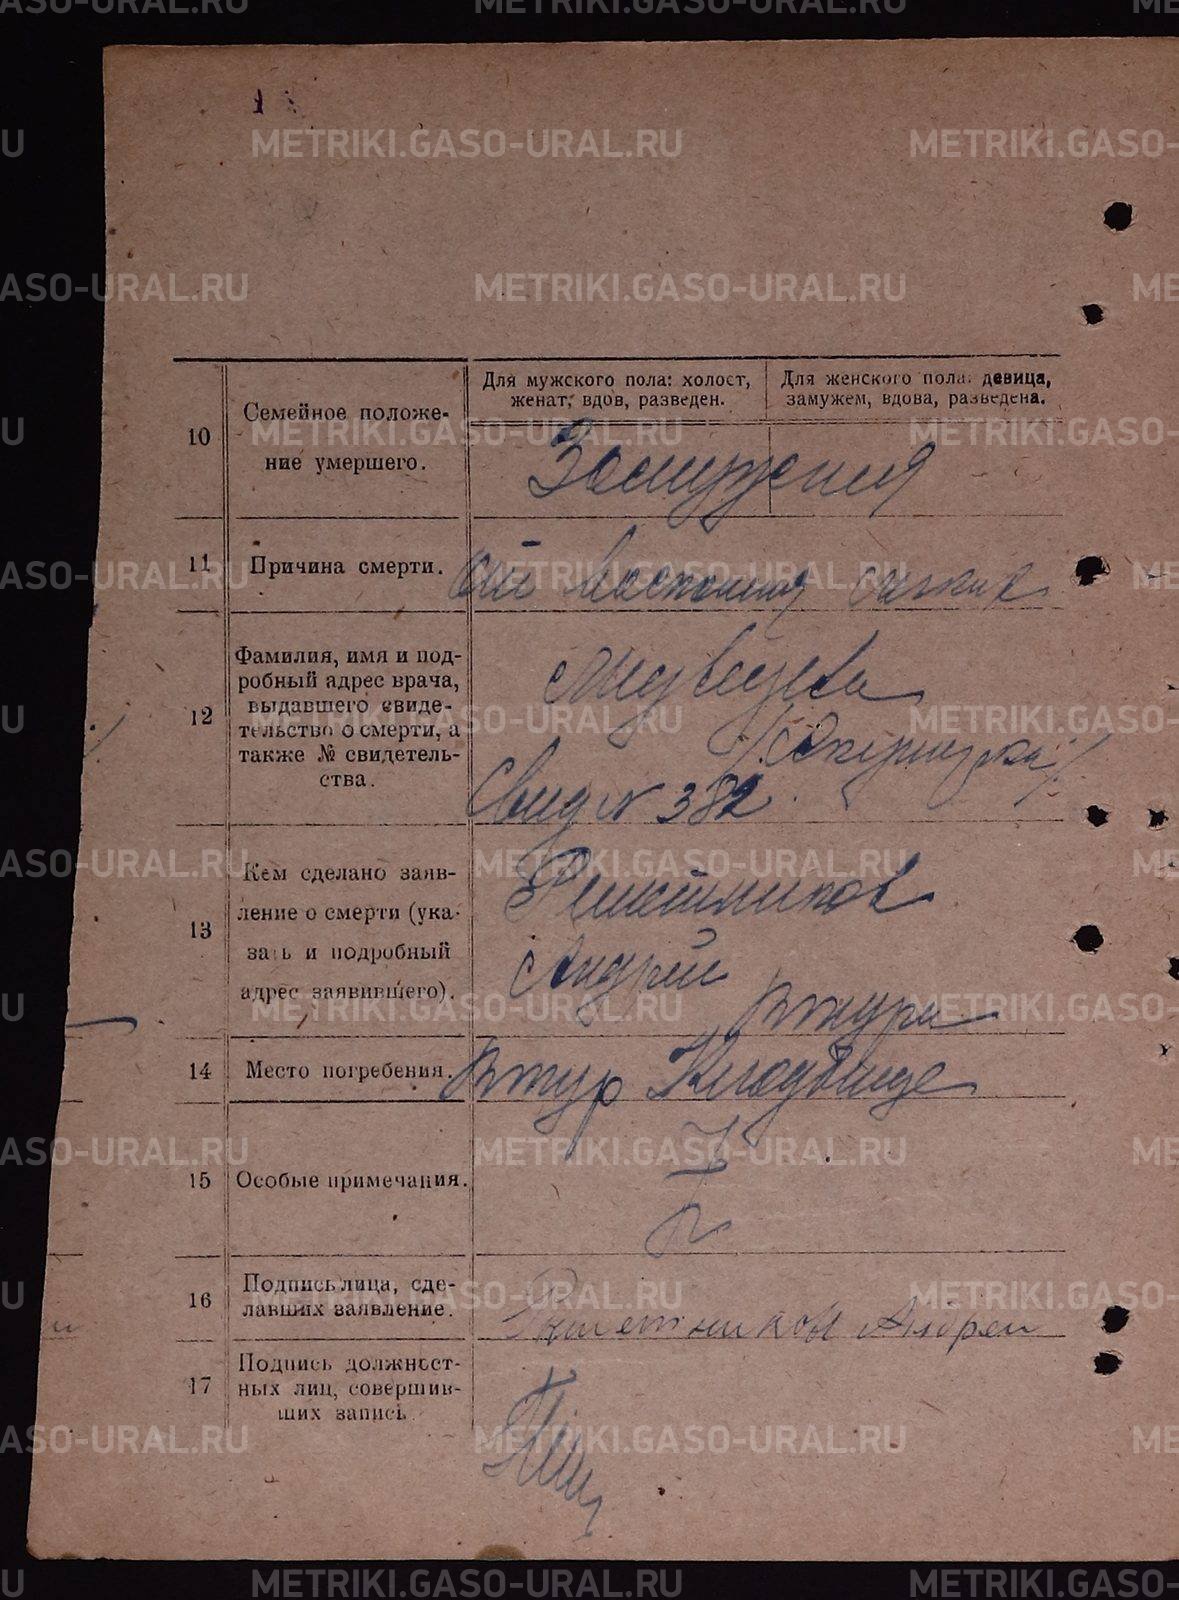 10
Семейное положе-
ние умершего.
Для мужского пола: холост,
женат, вдов, разведен.
Для женского пола: девица,
замужем, вдова, разведена.
Замужняя
11
Причина смерти.
от
12
Фамилия, имя и под-
робный адрес врача,
выдавшего свиде-
тельство о смерти, а
также № свидетель-
ства.
Медведева
/Акушерка/
Свид N 382.
13
Кем сделано заяв-
ление о смерти (ука-
зать и подробный
адрес заявившего).
Решетников
Андрей
14
Место погребения.
Кладбище
15
Особые примечания.
16
Подпись лица, сде-
лавших заявление.
Решетников Андрей
17
Подпись должност-
ных лиц, совершив-
ших запись.
METRIKI.GASO-URAL.RU